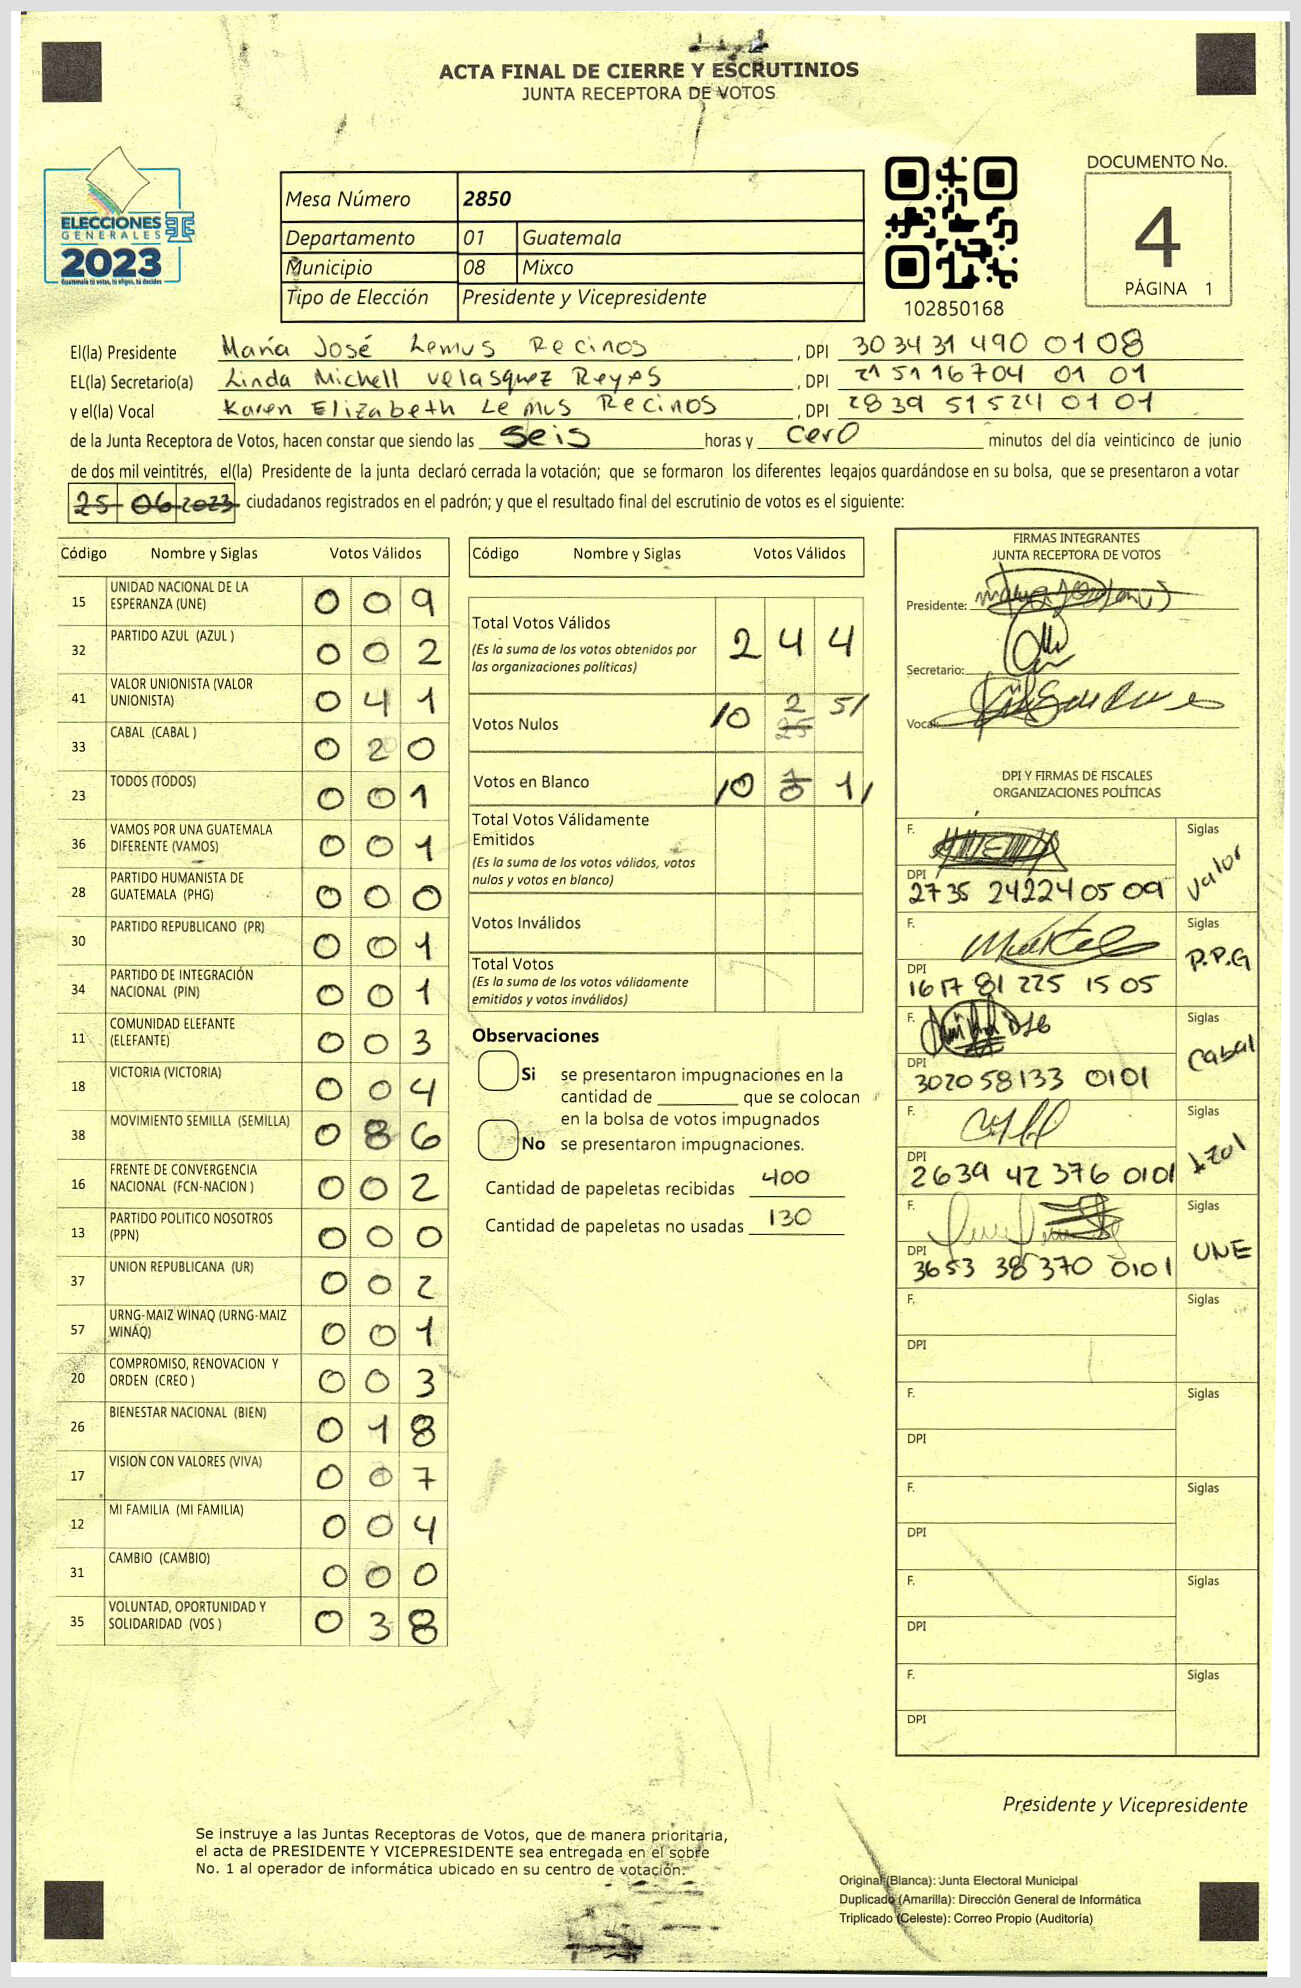 ACTA FINAL DE CIERRE Y ESCRUTINIOS
JUNTA RECEPTORA DE VOTOS
ELECCIONES
GENERALES
2023
Guatemala tú votas, tú eliges, tú decides
Mesa Número 2850
Departamento 01 Guatemala
Municipio 08 Mixco
Tipo de Elección Presidente y Vicepresidente
102850168
DOCUMENTO No.
4
PÁGINA 1
El(la) Presidente María José Lemus Recinos , DPI 3034 31490 0108
EL(la) Secretario(a) Linda Michell Velasquez Reyes , DPI 2151 16704 01 01
y el(la) Vocal Karen Elizabeth Lemus Recinos , DPI 2839 51524 0101
de la Junta Receptora de Votos, hacen constar que siendo las seis horas y cero minutos del día veinticinco de junio
de dos mil veintitrés, el(la) Presidente de la junta declaró cerrada la votación; que se formaron los diferentes legajos guardándose en su bolsa, que se presentaron a votar
25 06 2023 ciudadanos registrados en el padrón; y que el resultado final del escrutinio de votos es el siguiente:
Código Nombre y Siglas Votos Válidos
15 UNIDAD NACIONAL DE LA ESPERANZA (UNE) 0 0 9
32 PARTIDO AZUL (AZUL ) 0 0 2
41 VALOR UNIONISTA (VALOR UNIONISTA) 0 4 1
33 CABAL (CABAL ) 0 2 0
23 TODOS (TODOS) 0 0 1
36 VAMOS POR UNA GUATEMALA DIFERENTE (VAMOS) 0 0 1
28 PARTIDO HUMANISTA DE GUATEMALA (PHG) 0 0 0
30 PARTIDO REPUBLICANO (PR) 0 0 1
34 PARTIDO DE INTEGRACIÓN NACIONAL (PIN) 0 0 1
11 COMUNIDAD ELEFANTE (ELEFANTE) 0 0 3
18 VICTORIA (VICTORIA) 0 0 4
38 MOVIMIENTO SEMILLA (SEMILLA) 0 8 6
16 FRENTE DE CONVERGENCIA NACIONAL (FCN-NACION ) 0 0 2
13 PARTIDO POLITICO NOSOTROS (PPN) 0 0 0
37 UNION REPUBLICANA (UR) 0 0 2
57 URNG-MAIZ WINAQ (URNG-MAIZ WINAQ) 0 0 1
20 COMPROMISO, RENOVACION Y ORDEN (CREO ) 0 0 3
26 BIENESTAR NACIONAL (BIEN) 0 1 8
17 VISION CON VALORES (VIVA) 0 0 7
12 MI FAMILIA (MI FAMILIA) 0 0 4
31 CAMBIO (CAMBIO) 0 0 0
35 VOLUNTAD, OPORTUNIDAD Y SOLIDARIDAD (VOS ) 0 3 8
Código Nombre y Siglas Votos Válidos
Total Votos Válidos 2 4 4
(Es la suma de los votos obtenidos por
las organizaciones políticas)
Votos Nulos /0 2 5/
25
Votos en Blanco /0 0 1/
Total Votos Válidamente
Emitidos
(Es la suma de los votos válidos, votos
nulos y votos en blanco)
Votos Inválidos
Total Votos
(Es la suma de los votos válidamente
emitidos y votos inválidos)
Observaciones
Si se presentaron impugnaciones en la
cantidad de ________ que se colocan
en la bolsa de votos impugnados
No se presentaron impugnaciones.
Cantidad de papeletas recibidas 400
Cantidad de papeletas no usadas 130
FIRMAS INTEGRANTES
JUNTA RECEPTORA DE VOTOS
Presidente:
Secretario:
Vocal:
DPI Y FIRMAS DE FISCALES
ORGANIZACIONES POLÍTICAS
F. Siglas Valor
DPI 2735 24224 0509
F. Siglas P.P.G
DPI 1617 81 225 1505
F. Siglas Cabal
DPI 3020 58133 0101
F. Siglas
DPI 2639 42 376 0101
F. Siglas UNE
DPI 3653 38 370 0101
F. Siglas
DPI
F. Siglas
DPI
F. Siglas
DPI
F. Siglas
DPI
F. Siglas
DPI
Presidente y Vicepresidente
Se instruye a las Juntas Receptoras de Votos, que de manera prioritaria,
el acta de PRESIDENTE Y VICEPRESIDENTE sea entregada en el sobre
No. 1 al operador de informática ubicado en su centro de votación.
Original (Blanca): Junta Electoral Municipal
Duplicado (Amarilla): Dirección General de Informática
Triplicado (Celeste): Correo Propio (Auditoría)